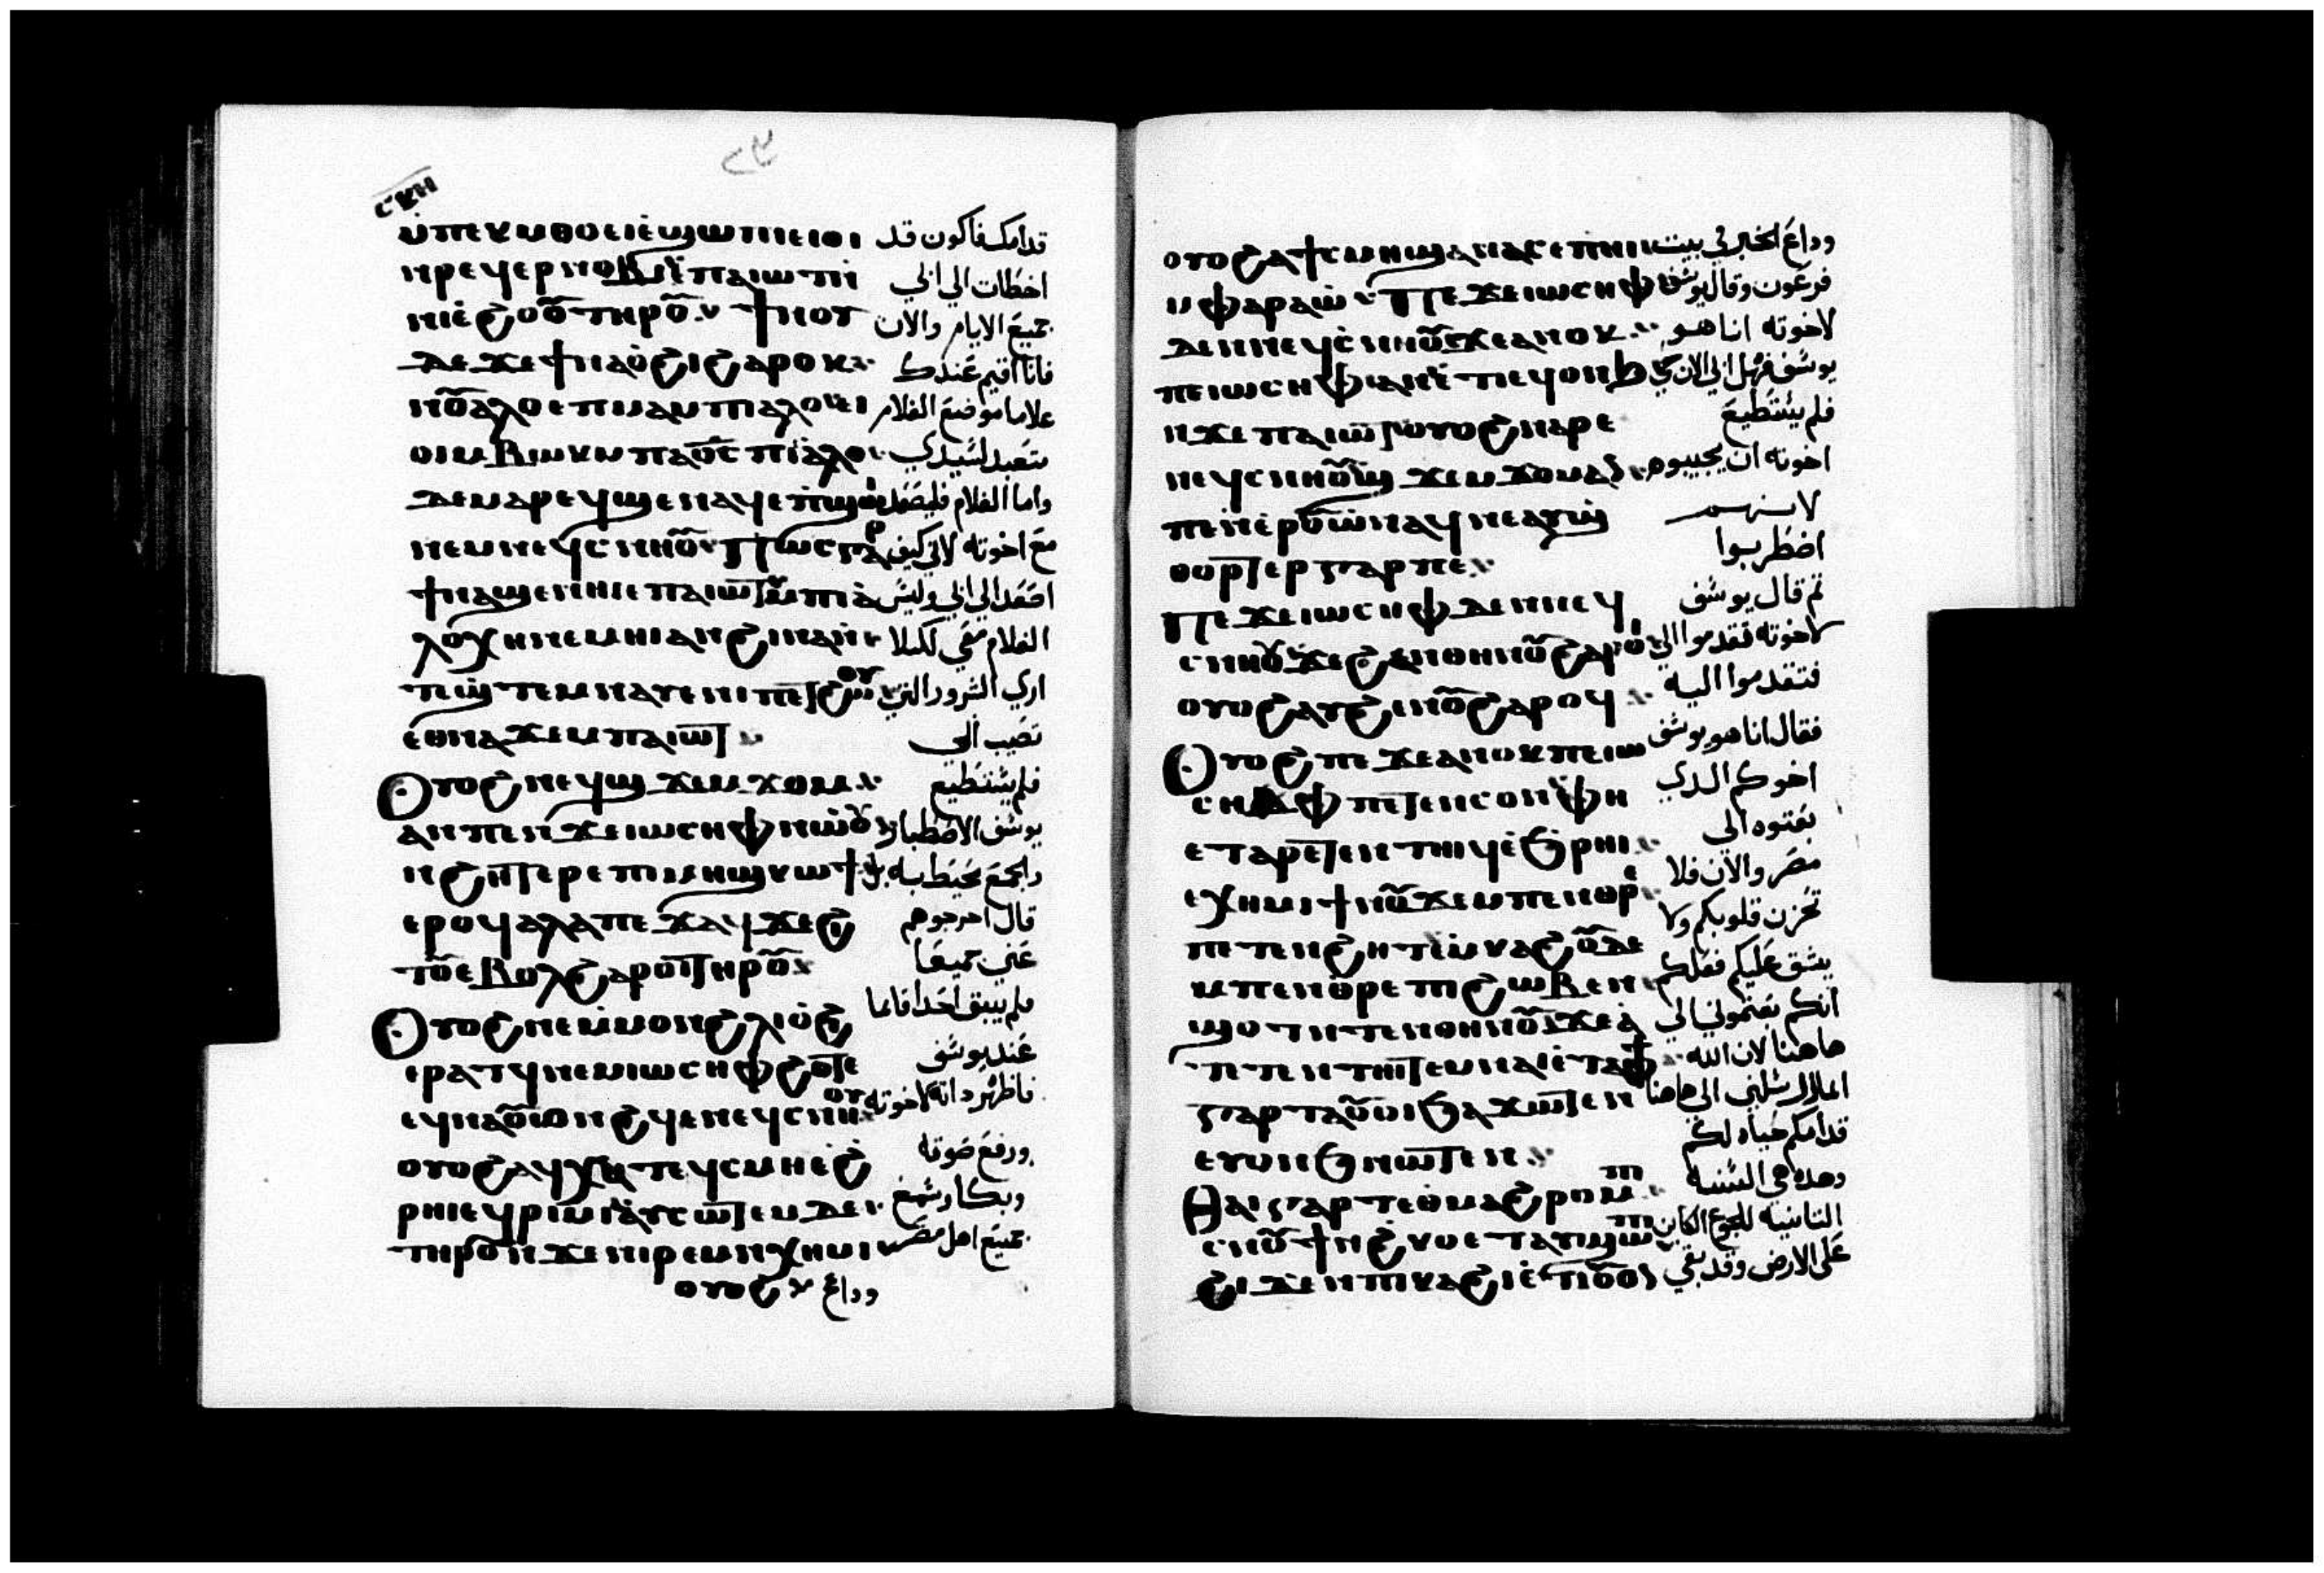 ⲥⲕⲏ
ⲙⲡⲉⲕⲙⲑⲟ ⲉⲓⲉϣⲱⲡⲓ ⲉⲓⲟⲓ قدامك فاكون قد
ⲛⲣⲉϥⲉⲣⲛⲟⲃⲓ ⲡⲁⲓⲱⲧ اخطات الى ابي
ⲛⲓⲉϩⲟⲟⲩ ⲧⲏⲣⲟⲩ ϯⲛⲟⲩ جميع الايام والان
ⲇⲉ ϫⲉ ϯⲛⲁⲟϩⲓ ϩⲁⲣⲟⲕ فانا اقيم عندك
ⲛⲟⲩⲁⲗⲟⲩ ⲉⲡⲙⲁ ⲙⲡⲓⲁⲗⲟⲩ ⲉⲓ غلاما موضع الغلام
ⲟⲓ ⲙⲃⲱⲕ ⲙⲡⲁⲟⲥ ⲡⲓⲁⲗⲟⲩ متعبد لسيدي
ⲇⲉ ⲙⲁⲣⲉϥϣⲉⲛⲁϥ ⲉⲡϣⲱⲓ واما الغلام فليصعد
ⲛⲉⲙ ⲛⲉϥⲥⲛⲏⲟⲩ ⲡⲱⲥ ⲅⲁⲣ مع اخوته لاني كيف
ϯⲛⲁϣⲉⲛⲏⲓ ⲉⲡⲁⲓⲱⲧ ⲙⲡⲓⲁ اصعد الى ابي وليس
ⲗⲟⲩ ⲭⲏ ⲛⲉⲙⲏⲓ ⲁⲛ ϩⲓⲛⲁ الغلام معي لكيلا
ⲛⲧⲁϣⲧⲉⲙⲛⲁⲩ ⲉⲛⲓⲡⲉⲧϩⲱⲟⲩ ارى الشرور التي
ⲉⲑⲛⲁϫⲉⲙ ⲡⲁⲓⲱⲧ تصيب ابي
ⲟⲩⲟϩ ⲛⲉϥϣϫⲉⲙϫⲟⲙ فلم يستطيع
ⲁⲛ ⲡⲉ ⲛϫⲉ ⲓⲱⲥⲏⲫ ⲛⲱⲟⲩ يوسف الاصطبار
ⲛϩⲏⲧ ⲉⲣⲉ ⲡⲓⲙⲏϣ ⲕⲱϯ والجمع محيط به بل
ⲉⲣⲟϥ ⲁⲗⲗⲁ ⲡⲉϫⲁϥ ϫⲉ ϩⲓ قال اخرجوهم
ⲧⲟⲩ ⲉⲃⲟⲗ ϩⲁⲣⲟⲓ ⲧⲏⲣⲟⲩ عني جميعا
ⲟⲩⲟϩ ⲛⲉⲙⲙⲟⲛ ϩⲗⲓ ⲟϩⲓ فلم يبق احدا قايما
ⲉⲣⲁⲧϥ ⲛⲉⲙ ⲓⲱⲥⲏⲫ ϩⲟⲧⲉ عند يوسف
ⲉϥⲛⲁⲟⲩⲱⲛϩϥ ⲉⲛⲉϥⲥⲛⲏⲟⲩ فاظهر ذاته لاخوته
ⲟⲩⲟϩ ⲁϥⲭⲱ ⲛⲧⲉϥⲥⲙⲏ ⲉϩ ورفع صوته
ⲣⲏⲓ ⲉϥⲣⲓⲙⲓ ⲁⲩⲥⲱⲧⲉⲙ ⲇⲉ وبكا وسمع
ⲧⲏⲣⲟⲩ ⲛϫⲉ ⲛⲓⲣⲉⲙⲛⲭⲏⲙⲓ جميع اهل مصر
ⲟⲩⲟϩ وذاع
ⲟⲩⲟϩ ⲁ ϯⲥⲙⲏ ϣⲉⲛⲁⲥ ⲉⲡⲏⲓ وذاع الخبر في بيت
ⲙⲫⲁⲣⲁⲱ ⲡⲉϫⲉ ⲓⲱⲥⲏⲫ فرعون وقال يوسف
ⲇⲉ ⲛⲛⲉϥⲥⲛⲏⲟⲩ ϫⲉ ⲁⲛⲟⲕ لاخوته انا هو
ⲡⲉ ⲓⲱⲥⲏⲫ ⲁⲛ ⲉⲧⲓ ϥⲟⲛϧ يوسف فهل ابي الان حي
ⲛϫⲉ ⲡⲁⲓⲱⲧ ⲟⲩⲟϩ ⲛⲁⲣⲉ فلم يستطيع
ⲛⲉϥⲥⲛⲏⲟⲩ ϣϫⲉⲙϫⲟⲙ ⲁⲛ اخوته ان يجيبوه
ⲡⲉ ⲛⲉⲣⲟⲩⲱ ⲛⲁϥ ⲛⲉⲁⲩϣ لانهم
ⲑⲟⲣⲧⲉⲣ ⲅⲁⲣ ⲡⲉ اضطربوا
ⲡⲉϫⲉ ⲓⲱⲥⲏⲫ ⲇⲉ ⲛⲛⲉϥ ثم قال يوسف
ⲥⲛⲏⲟⲩ ϫⲉ ϧⲱⲛⲧ ⲉⲛⲟⲩ ϩⲁⲣⲟⲓ لاخوته تقدموا الي
ⲟⲩⲟϩ ⲁⲩϧⲱⲛⲧ ϩⲁⲣⲟϥ فتقدموا اليه
ⲟⲩⲟϩ ⲡⲉϫⲉ ⲁⲛⲟⲕ ⲡⲉ ⲓⲱ فقال انا هو يوسف
ⲥⲏⲫ ⲡⲉⲧⲉⲛⲥⲟⲛ ⲫⲏ اخوكم الدي
ⲉⲧⲁⲣⲉⲧⲉⲛ ⲧⲏⲓϥ ⲉϧⲣⲏⲓ بعتوه الى
ⲉⲭⲏⲙⲓ ϯⲛⲟⲩ ϫⲉ ⲙⲡⲉⲛⲑⲣⲉ مصر والان فلا
ⲡⲉⲧⲉⲛϩⲏⲧ ⲙⲕⲁϩ ⲟⲩⲇⲉ تحزن قلوبكم ولا
ⲙⲡⲉⲛⲑⲣⲉ ⲡⲓϩⲱⲃ ⲉⲛ يشق عليكم فعلكم
ϣⲟⲧ ⲛⲧⲉⲛ ⲑⲏⲛⲟⲩ ϫⲉ ⲁ انكم بعتموني الى
ⲧⲉⲧⲉⲛⲧⲏⲓⲧ ⲉⲙⲛⲁⲓ ⲉⲧⲁ ⲫϯ هاهنا لان الله
ⲅⲁⲣ ⲧⲁⲟⲩⲟⲓ ϧⲁϫⲱⲧⲉⲛ انما ارسلني الى هاهنا
ⲉⲩⲱⲛϧ ⲛⲱⲧⲉⲛ قدامكم حياه لكم
ⲑⲁⲓ ⲅⲁⲣ ⲧⲉ ⲑⲙⲁϩⲣⲟⲙⲡⲓ وهده هي السنه
ⲥⲛⲟⲩϯ ⲛϩⲕⲟ ⲉⲧⲁⲥϣⲱⲡⲓ التانيه للجوع الكاين
ϩⲓϫⲉⲛ ⲡⲓⲕⲁϩⲓ ⲉⲧⲓ على الارض وقد بقي